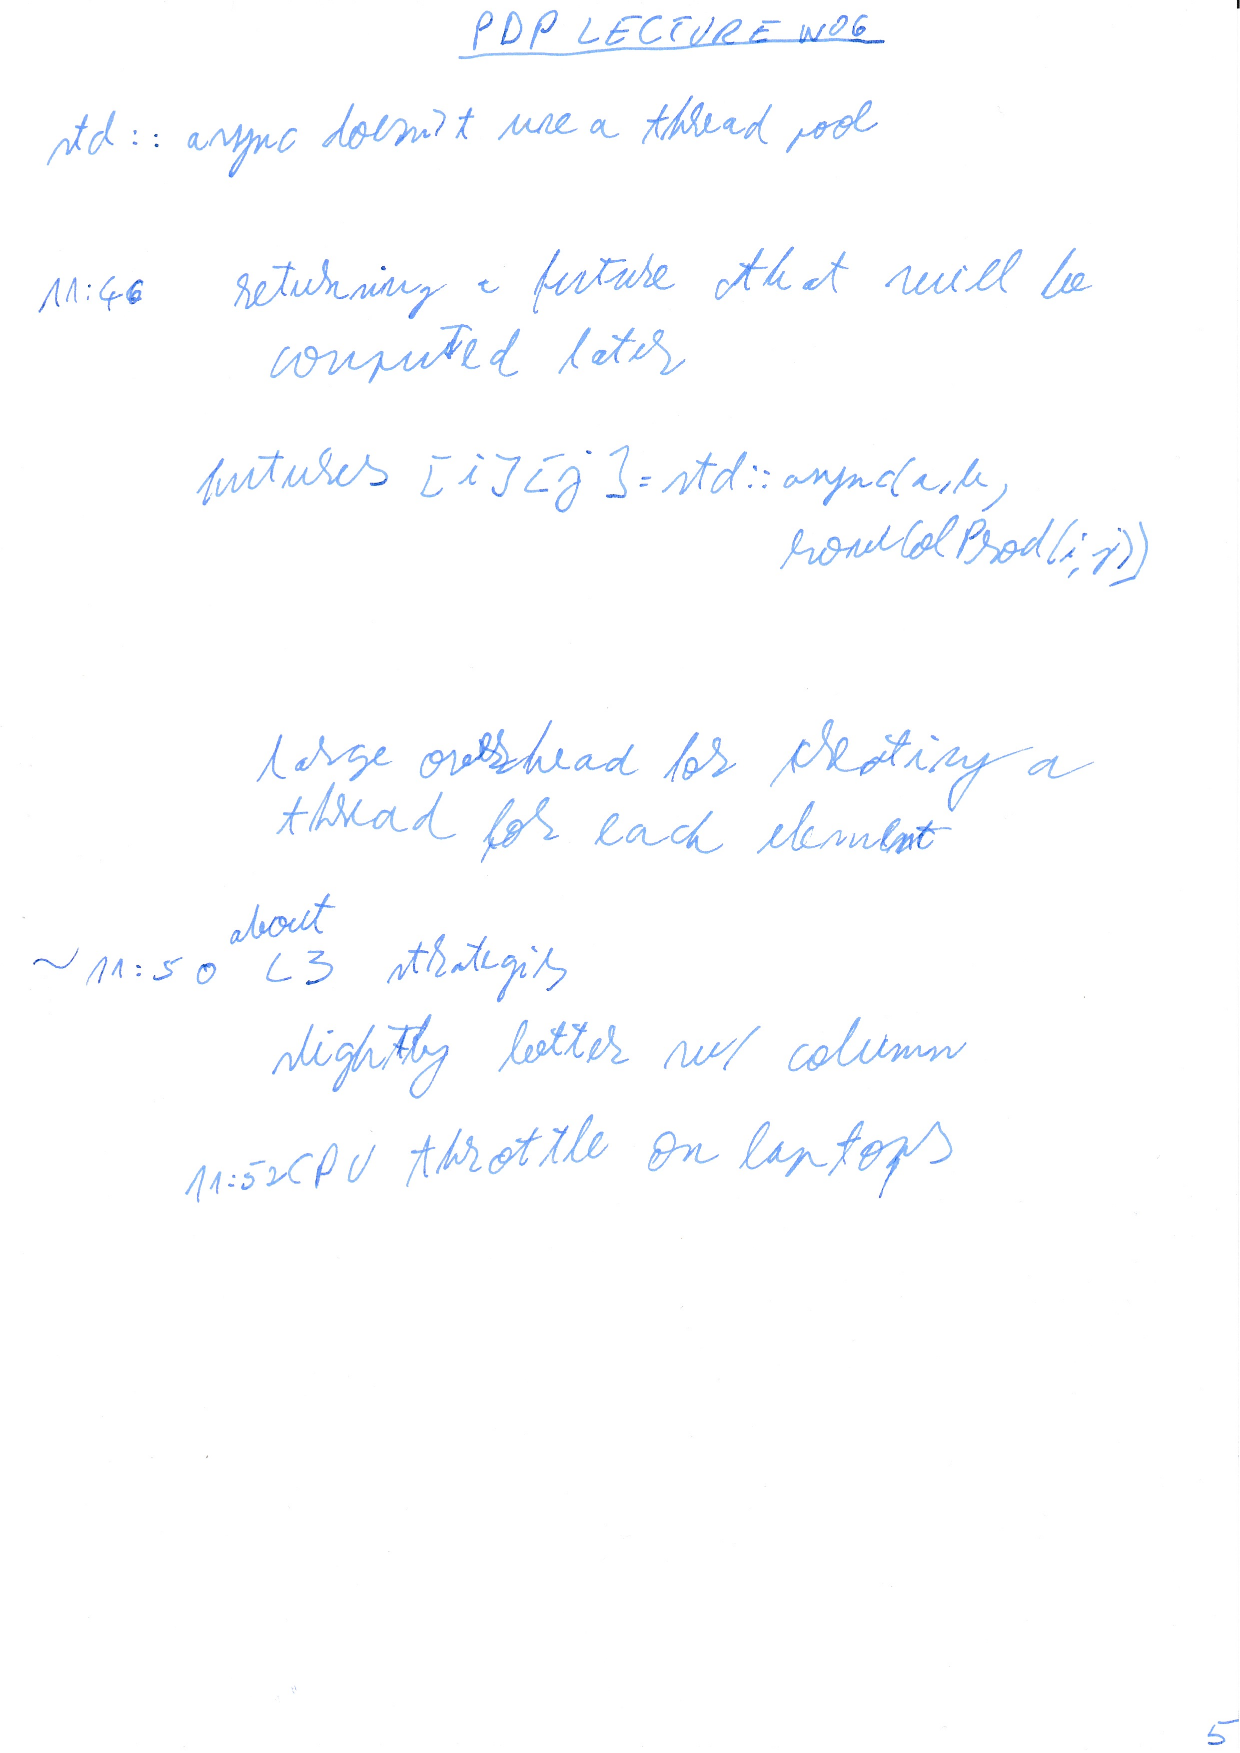 PDP LECTURE W06
std:: async doesn't use a thread pool
11:46 returning a future that will be
computed later
futures [i][j]=std::async(a,b,
rowColProd(i,j))
large overhead for creating a
thread for each element
about
~11:50 L3 strategies
slightly better w/ column
11:52 CPU throttle on laptops
5